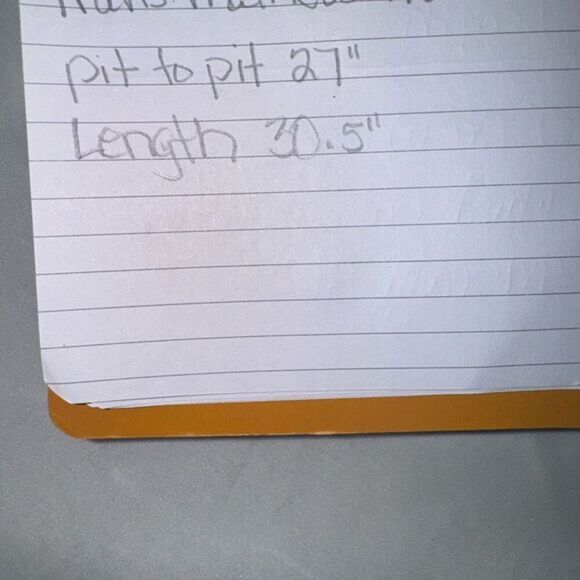 pit to pit 27"
Length 30.5"